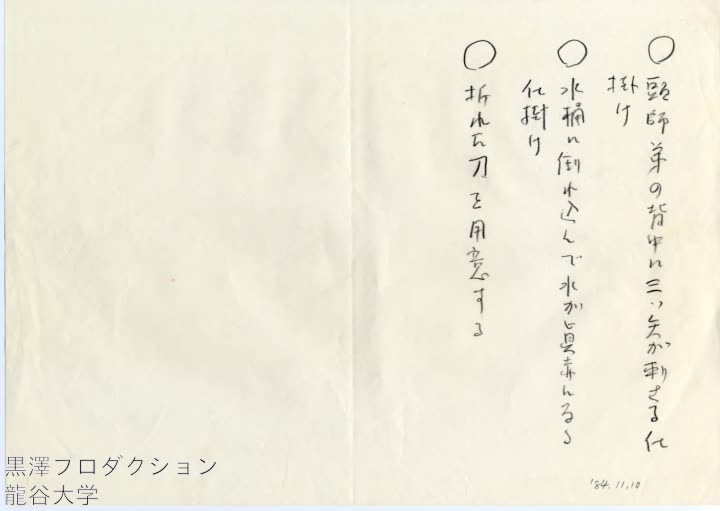 ○頭師弟の背中に三ツ矢が刺さる仕
掛け
○水桶に倒れ込んで水が真赤になる
仕掛け
○折れた刀を用意する
'84.11.10
黒澤プロダクション
龍谷大学